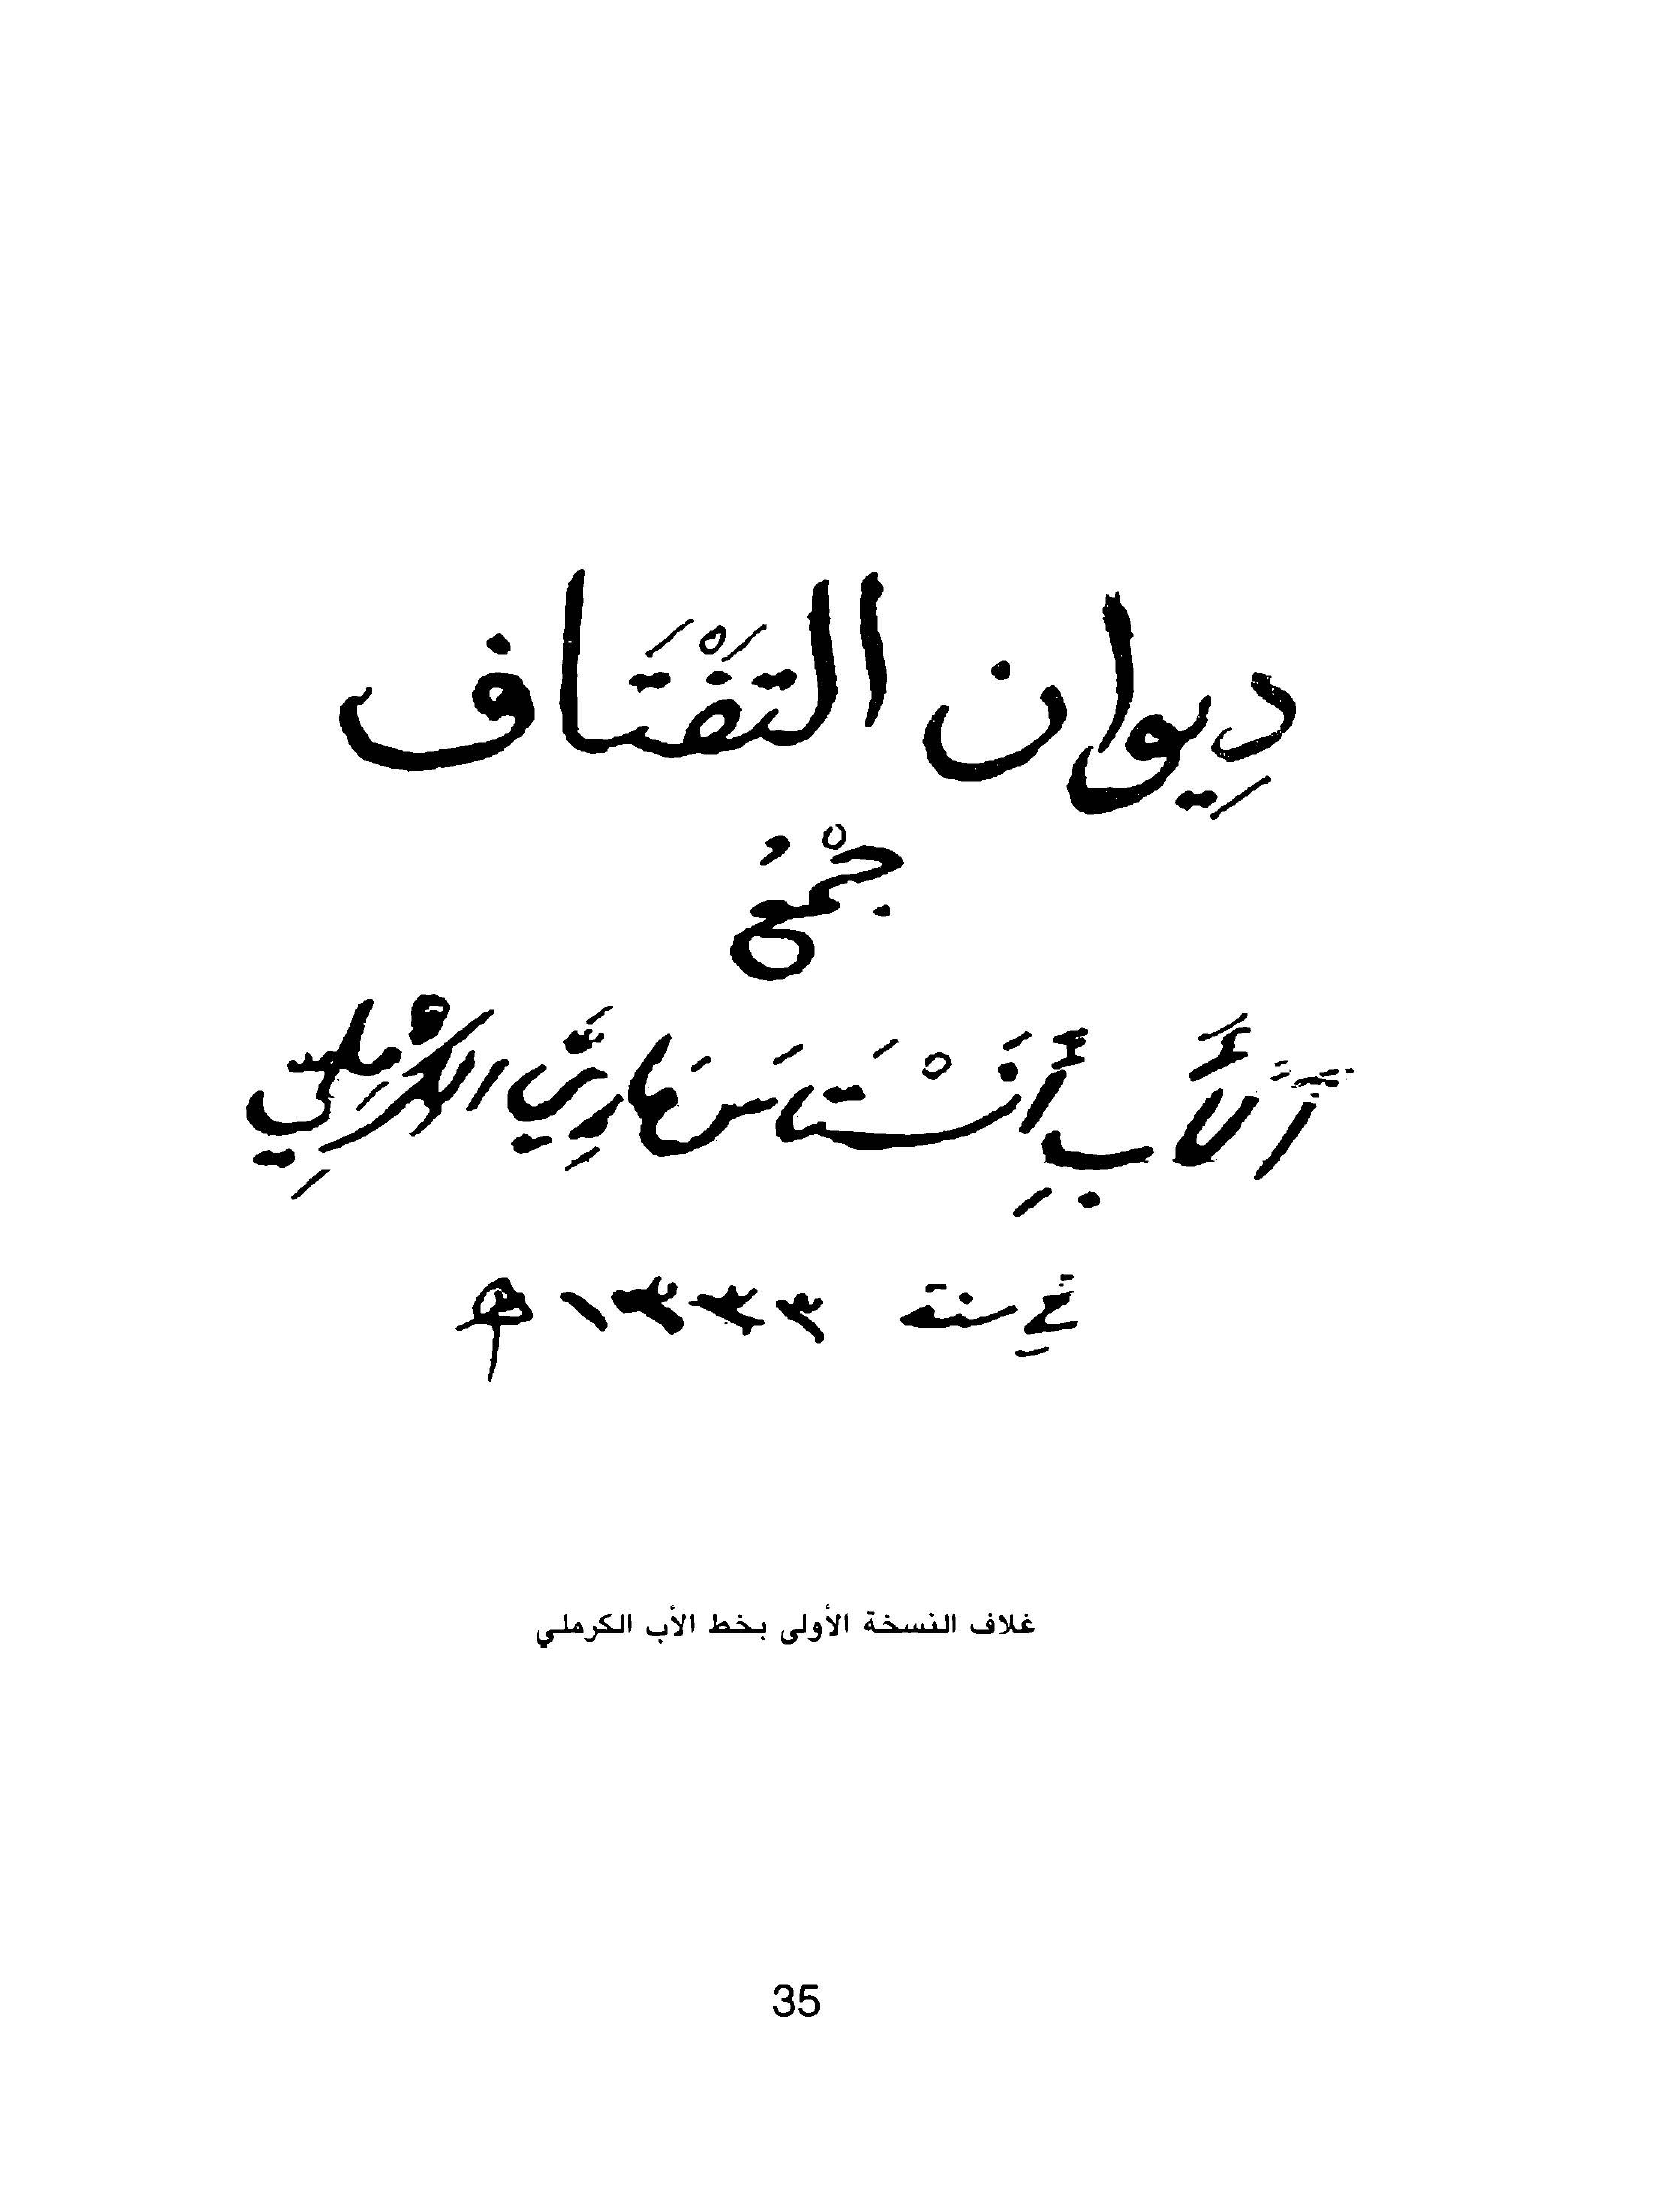 دِيوان التَفْتَاف
جَمْعُ
أَلأَبِ أَنَسْتَاسَ مَارِيِّ الكَرْمَلِيّ
في سنة ١٣٣٣ هـ
غلاف النسخة الأولى بخط الأب الكرملي
35